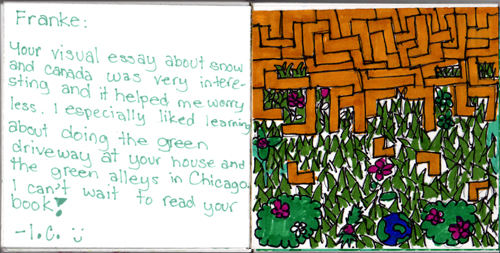 Franke:
Your visual essay about snow
and canada was very intere-
sting and it helped me worry
less. I especially liked learning
about doing the green
driveway at your house and
the green alleys in Chicago.
I can't wait to read your
book!
-I.C. :)